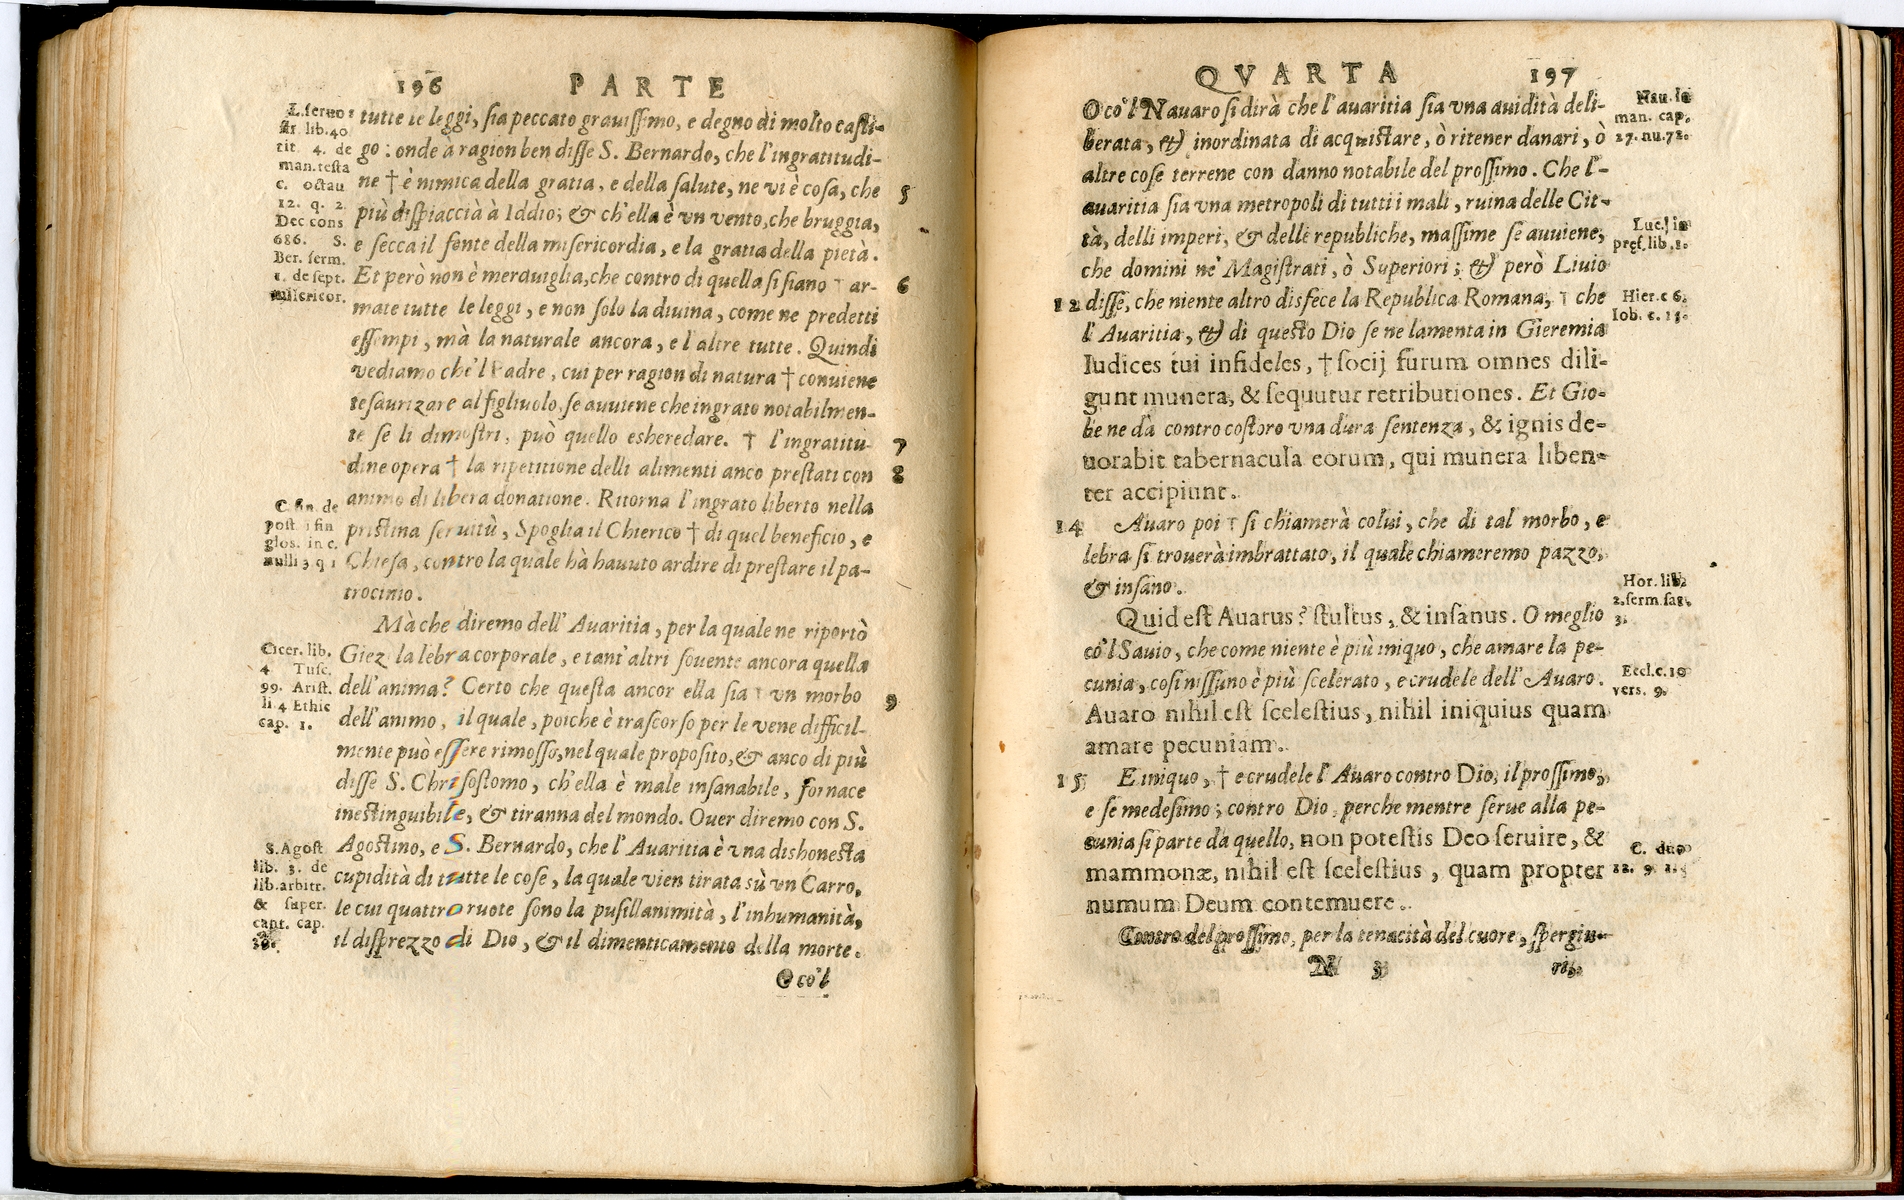 196 PARTE
L. seruo 1
21. lib. 40
tit. 4. de
man. testa
c. octau
12. q. 2.
Dec cons
686. S.
Ber. serm.
1. de sept.
misericor.
tutte le leggi, sia peccato grauissimo, e degno di molto casti-
go : onde à ragion ben disse S. Bernardo, che l'ingratitudi-
ne † è nimica della gratia, e della salute, ne vi è cosa, che 5
più dispiaccià à Iddio; & ch'ella è vn vento, che bruggia,
e secca il fonte della misericordia, e la gratia della pietà.
Et però non è merauiglia, che contro di quella si siano † ar- 6
mate tutte le leggi, e non solo la diuina, come ne predetti
essempi, mà la naturale ancora, e l'altre tutte. Quindi
vediamo che'l Padre, cui per ragion di natura † conuiene
tesaurizare al figliuolo, se auuiene che ingrato notabilmen-
te se li dimostri, può quello esheredare. † l'ingratitu- 7
dine opera † la ripetitione delli alimenti anco prestati con 8
animo di libera donatione. Ritorna l'ingrato liberto nella
pristina seruitù, Spoglia il Chierico † di quel beneficio, e
Chiesa, contro la quale hà hauuto ardire di prestare il pa-
trocinio.
C. fin. de
post. i fin
glos. in c.
nulli 3 q 1
Mà che diremo dell'Auaritia, per la quale ne riportò
Giez la lebra corporale, e tant'altri souente ancora quella
dell'anima? Certo che questa ancor ella sia † vn morbo 9
dell'animo, il quale, poiche è trascorso per le vene difficil-
mente può essere rimosso, nel quale proposito, & anco di più
disse S. Chrisostomo, ch'ella è male insanabile, fornace
inestinguibile, & tiranna del mondo. Ouer diremo con S.
Agostino, e S. Bernardo, che l'Auaritia è vna dishonesta
cupidità di tutte le cose, la quale vien tirata sù vn Carro,
le cui quattro ruote sono la pusillanimità, l'inhumanità,
il disprezzo di Dio, & il dimenticamento della morte.
Cicer. lib.
4 Tusc.
99. Arist.
li. 4 Ethic
cap. 1.
S. Agost
lib. 3. de
lib. arbitr.
& super.
cant. cap.
39.
O co'l
QVARTA 197
O co'l Nauaro si dirà che l'auaritia sia vna auidità deli-
berata, & inordinata di acquistare, ò ritener danari, ò
altre cose terrene con danno notabile del prossimo. Che l'-
auaritia sia vna metropoli di tutti i mali, ruina delle Cit-
tà, delli imperi, & delle republiche, massime se auuiene,
che domini ne' Magistrati, ò Superiori; & però Liuio
12 disse, che niente altro disfece la Republica Romana, † che
l'Auaritia, & di questo Dio se ne lamenta in Gieremia
Iudices tui infideles, † socij furum omnes dili-
gunt munera, & sequutur retributiones. Et Gio-
be ne dà contro costoro vna dura sentenza, & ignis de-
uorabit tabernacula eorum, qui munera liben-
ter accipiunt.
Nau. ī
man. cap.
27. nu. 72.
Luc. ī
pref. lib. 1.
Hier. c 6.
Iob. c. 15.
14 Auaro poi † si chiamerà colui, che di tal morbo, e
lebra si trouerà imbrattato, il quale chiameremo pazzo,
& insano.
Quid est Auarus? stultus, & insanus. O meglio
co'l Sauio, che come niente è più iniquo, che amare la pe-
cunia, cosi nissuno è più scelerato, e crudele dell'Auaro.
Auaro nihil est scelestius, nihil iniquius quam
amare pecuniam.
Hor. lib.
2. serm. sat.
3.
Eccl. c. 10
vers. 9.
15 E iniquo, † e crudele l'Auaro contro Dio, il prossimo,
e se medesimo; contro Dio, perche mentre serue alla pe-
cunia si parte da quello, non potestis Deo seruire, &
mammonæ, nihil est scelestius, quam propter
numum Deum contemuere.
C. duo
12. q. 1.
Contro del prossimo, per la tenacità del cuore, spergiu-
N 3 rij,